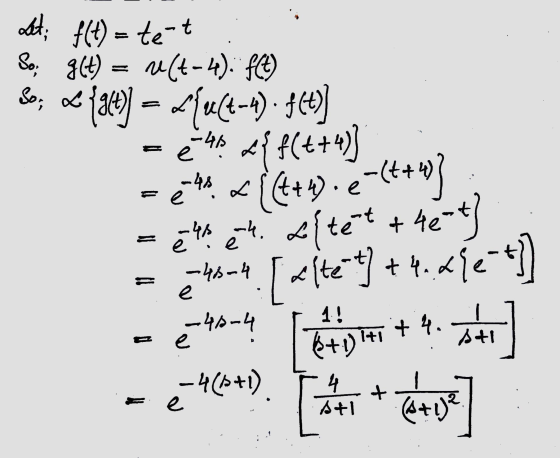 Let; f(t) = te^{-t}
So; g(t) = u(t-4). f(t)
So; ℒ{g(t)] = ℒ{u(t-4)·f(t)]
= e^{-4s}. ℒ{f(t+4)]
= e^{-4s}. ℒ{(t+4)·e^{-(t+4)}]
= e^{-4s}. e^{-4}. ℒ{te^{-t} + 4e^{-t}}
= e^{-4s-4}. [ℒ{te^{-t}] + 4. ℒ{e^{-t}]]
= e^{-4s-4}. [1!/(s+1)^{1+1} + 4. 1/s+1]
= e^{-4(s+1)}. [4/s+1 + 1/(s+1)^2]